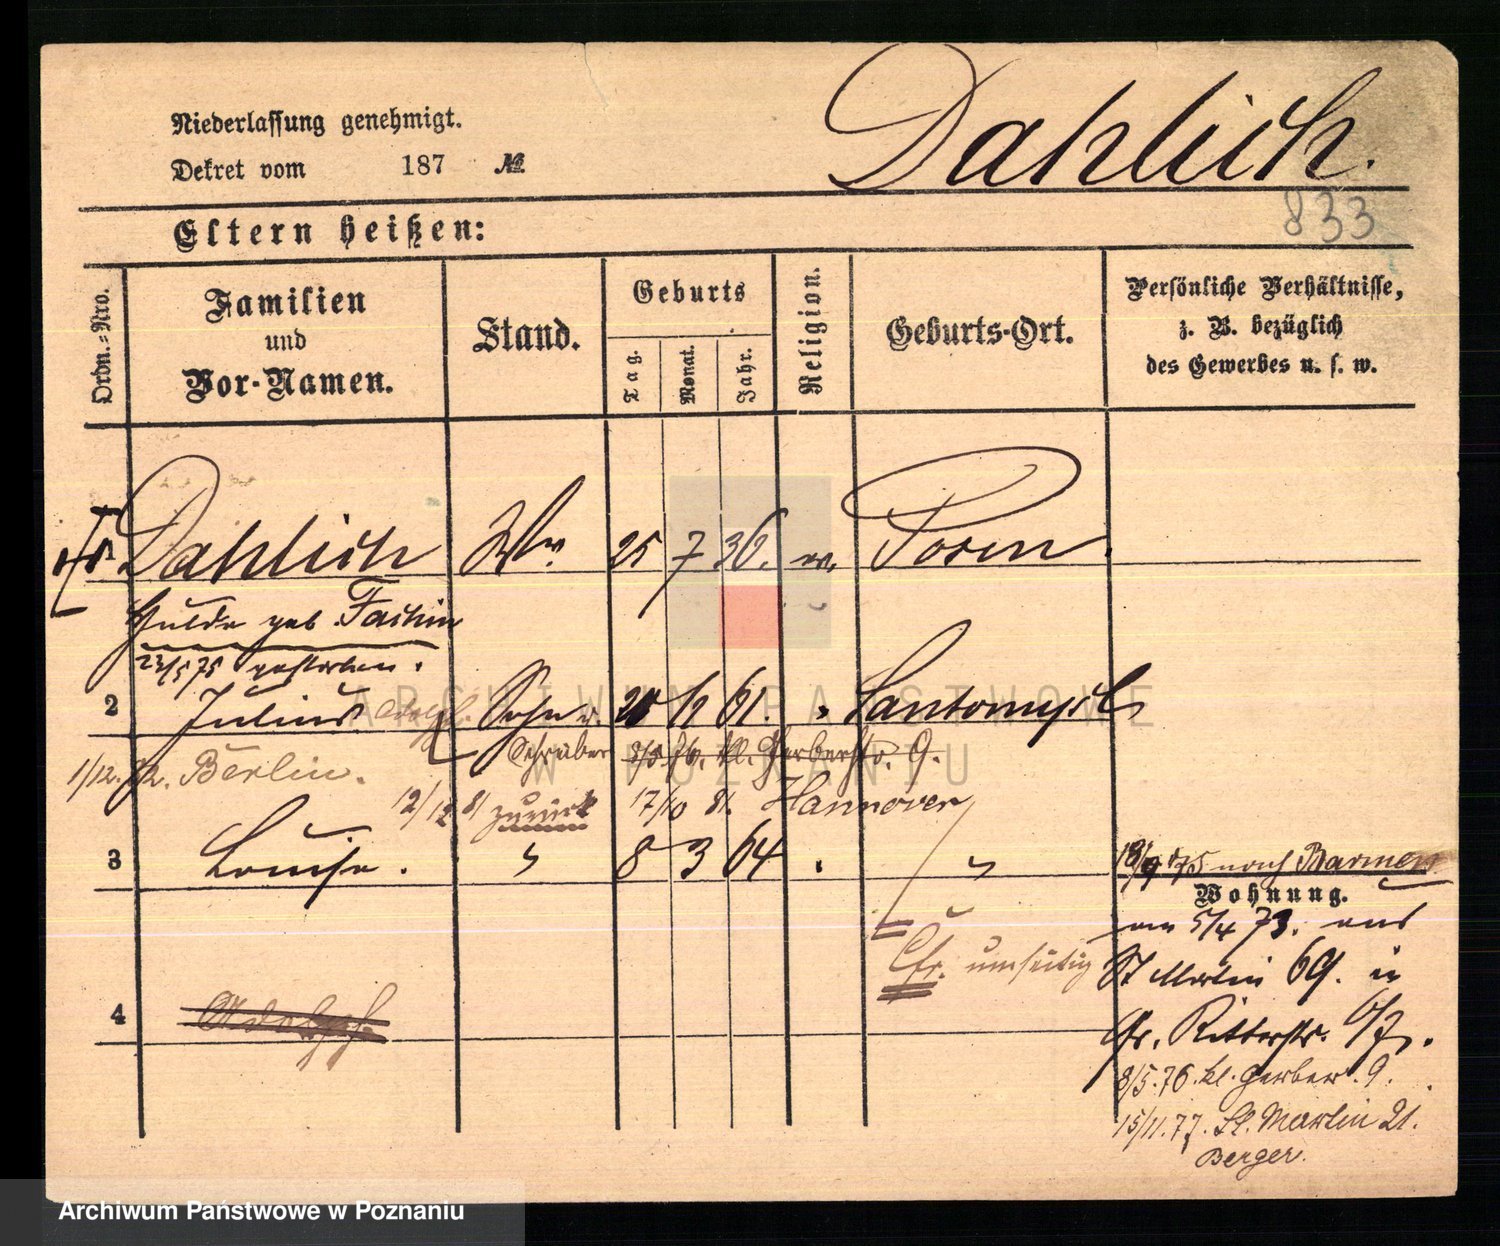 Niederlassung genehmigt.
Dahlich.
Dekret vom 187 №
833
Eltern heißen:
Ordn.=Nro.
Familien
und
Vor-Namen.
Stand.
Geburts
Tag.
Monat.
Jahr.
Religion.
Geburts-Ort.
Persönliche Verhältnisse,
z. B. bezüglich
des Gewerbes u. s. w.
Dahlich Ww. 25 7 36. ev. Posen
Hulda geb. Fachin
23/5 75 gestorben.
2 Julius Adolph. Sohn 61. Santomyschl
Schreiber 8/5 76. kl. Gerberstr. 9.
1/12. Berlin.
12/12 81 zurück 17/10 81. Hannover
3 Louise. 8 3 64
18/9 75 nach Barmen
Wohnung.
am 5/4 73. aus
St Martin 69. in
Gr. Ritterstr. 6/7.
8/5.76. kl. Gerber. 9.
15/11.77. St. Martin 21.
Berger.
Cfr. umseitig
4 Adolph.
ARCHIWUM PAŃSTWOWE
W POZNANIU
Archiwum Państwowe w Poznaniu